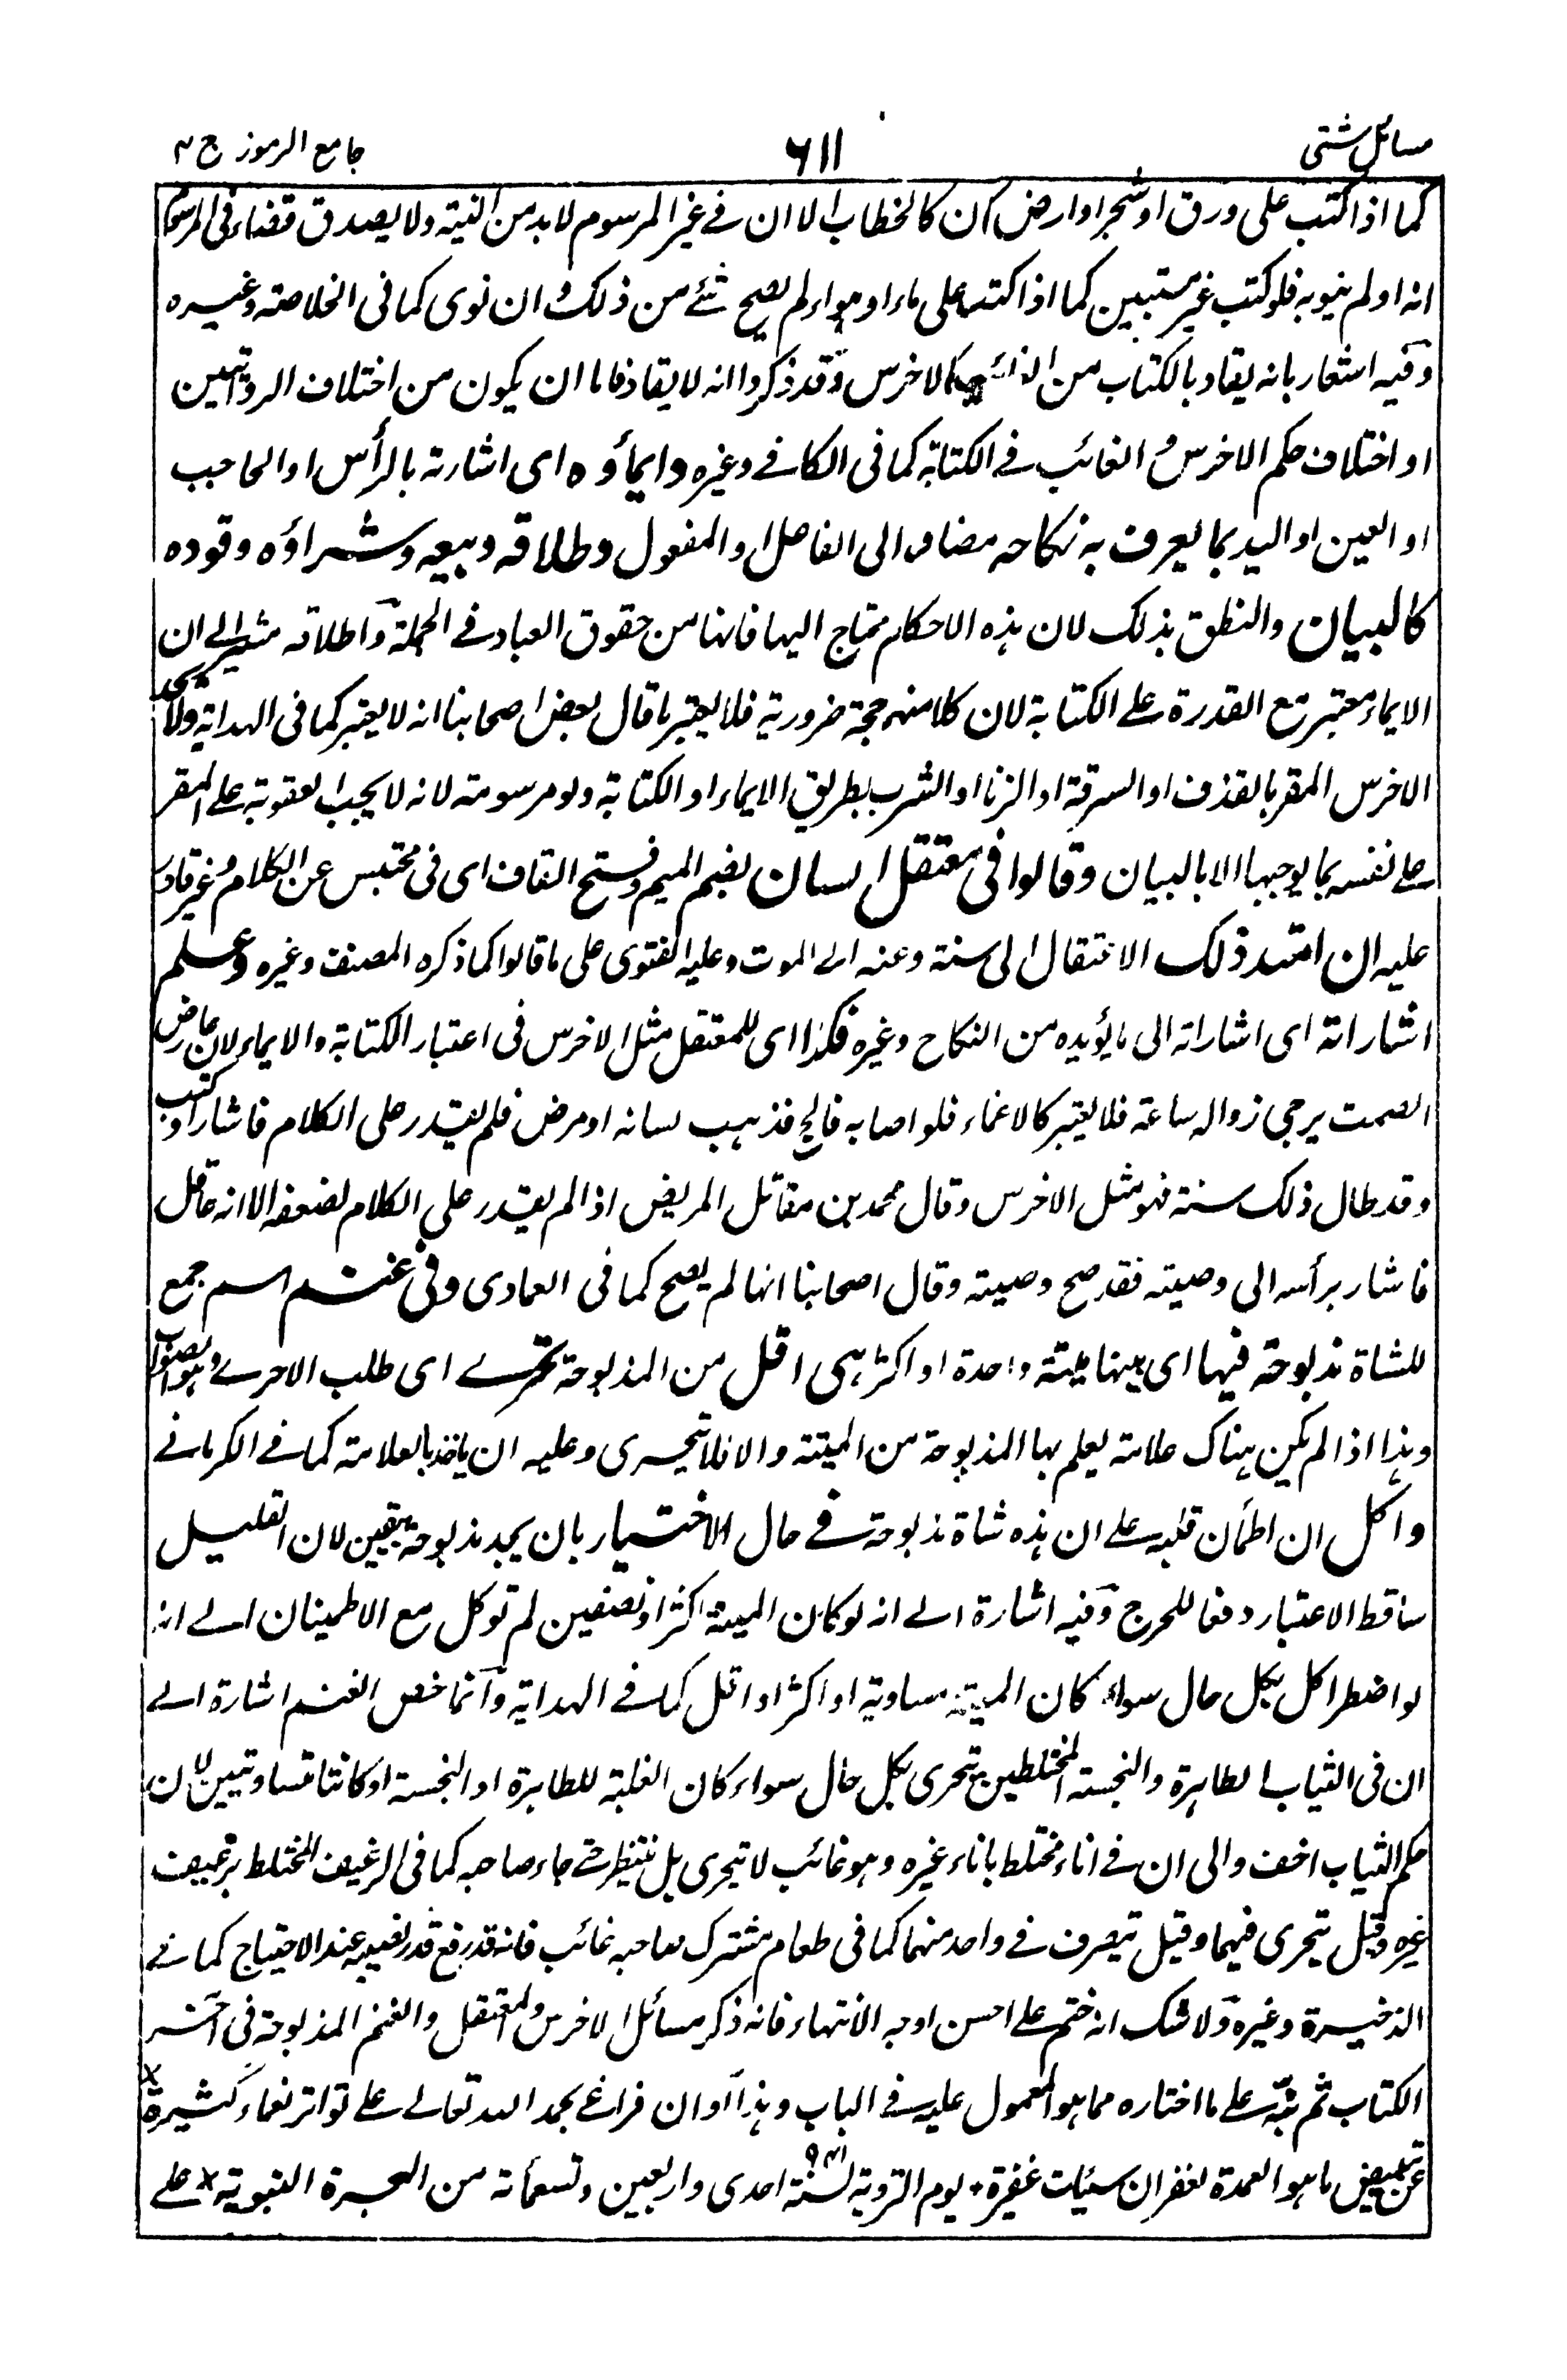 مسائل شتى
٦١١
جامع الرموز ج ٣
كما اذا كتب على ورق او شجر او ارض كان كالخطاب الا ان فى غير المرسوم لا بد من النية ولا يصدق قضاء فى المرسوم
انه او لم ينو به فلو كتب غير مستبين كما اذا كتب على ماء او هواء لم يصح شئ من ذلك و ان نوى كما فى الخلاصة وغيره
وفيه اشعار بانه يقاد بالكتاب من الغائب كالاخرس وقد ذكروا انه لا يقاد فاما ان يكون من اختلاف الروايتين
او اختلاف حكم الاخرس و الغائب فى الكتابة كما فى الكافى وغيره وايماؤه اى اشارته بالرأس او الحاجب
او العين او اليد بما يعرف به نكاحه مضاف الى الفاعل او المفعول وطلاقه وبيعه وشراؤه وقوده
كالبيان والنطق بذلك لان هذه الاحكام تحتاج اليها فانها من حقوق العباد فى الجملة واطلاقه مشير الى ان
الايماء معتبر مع القدرة على الكتابة لان كلا منهما حجة ضرورية فلا يعتبر ما قال بعض اصحابنا انه لا يعتبر كما فى الهداية ولا يحد
الاخرس المقر بالقذف او السرقة او الزنا او الشرب بطريق الايماء او الكتابة ولو مرسومة لانه لا يجب العقوبة على المقر
على نفسه بما يوجبها الا بالبيان وقالوا فى معتقل اللسان بضم الميم وفتح القاف اى فى محتبس عن الكلام وغير قادر
عليه ان امتد ذلك الاعتقال الى سنة وعنه الى الموت وعليه الفتوى على ما قالوا كما ذكره المصنف وغيره وعلم
اشاراته اى اشاراته الى ما يؤيده من النكاح وغيره فكذا اى للمعتقل مثل الاخرس فى اعتبار الكتابة والايماء لان عارض
الصمت يرجى زواله ساعة فلا يعتبر كالاغماء فلو اصابه فالج فذهب لسانه او مرض فلم يقدر على الكلام فاشار او كتب
وقد طال ذلك سنة فهو مثل الاخرس وقال محمد بن مقاتل المريض اذا لم يقدر على الكلام لضعفه الا انه عاقل
فاشار برأسه الى وصيته فقد صح وصيته وقال اصحابنا انها لم يصح كما فى العمادى وفى غنم اسم جمع
للشاة مذبوحة فيها اى بينها ميتة واحدة او اكثر هى اقل من المذبوحة تحرى اى طلب الاحرى وهو الصواب
وهذا اذا لم يكن هناك علامة يعلم بها المذبوحة من الميتة والا فلا تحرى وعليه ان ياخذ بالعلامة كما فى الكرمانى
واكل ان اطمأن قلبه على ان هذه شاة مذبوحة فى حال الاختيار بان يجد مذبوحة بيقين لان القليل
ساقط الاعتبار دفعا للحرج وفيه اشارة الى انه لو كان الميتة اكثر او نصفين لم توكل مع الاطمينان الى انه
لو اضطر اكل بكل حال سواء كان الميتة مساوية او اكثر او اقل كما فى الهداية وانما خص الغنم اشارة الى
ان فى الثياب الطاهرة والنجسة المختلطين تحرى بكل حال سواء كان الغلبة للطاهرة او النجسة او كانتا متساويتين لان
حكم الثياب اخف والى ان فى اناء مختلط باناء غيره وهو غائب لا يتحرى بل ينتظر حتى جاء صاحبه كما فى الرغيف المختلط برغيف
غيره وقيل يتحرى فيهما وقيل يتصرف فى واحد منهما كما فى طعام مشترك صاحبه غائب فانه قد رفع قدر نصيبه عند الاحتياج كما فى
الذخيرة وغيره ولا شك انه ختم على احسن اوجه الانتهاء فانه ذكر مسائل الاخرس والمعتقل والغنم المذبوحة فى آخر
الكتاب ثم نبه على ما اختاره مما هو المعمول عليه فى الباب وهذا اوان فراغى بحمد الله تعالى على تواتر نعماء كثيرة
عن تبييض ما هو العمدة لغفران سيئات غفيرة يوم التروية لسنة ٩٤١ احدى واربعين وتسعمائة من الهجرة النبوية على